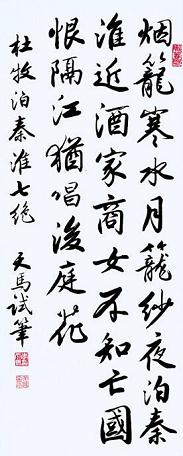 烟籠寒水月籠紗夜泊秦
淮近酒家商女不知亡國
恨隔江猶唱後庭花
杜牧泊秦淮七絕
馬試筆